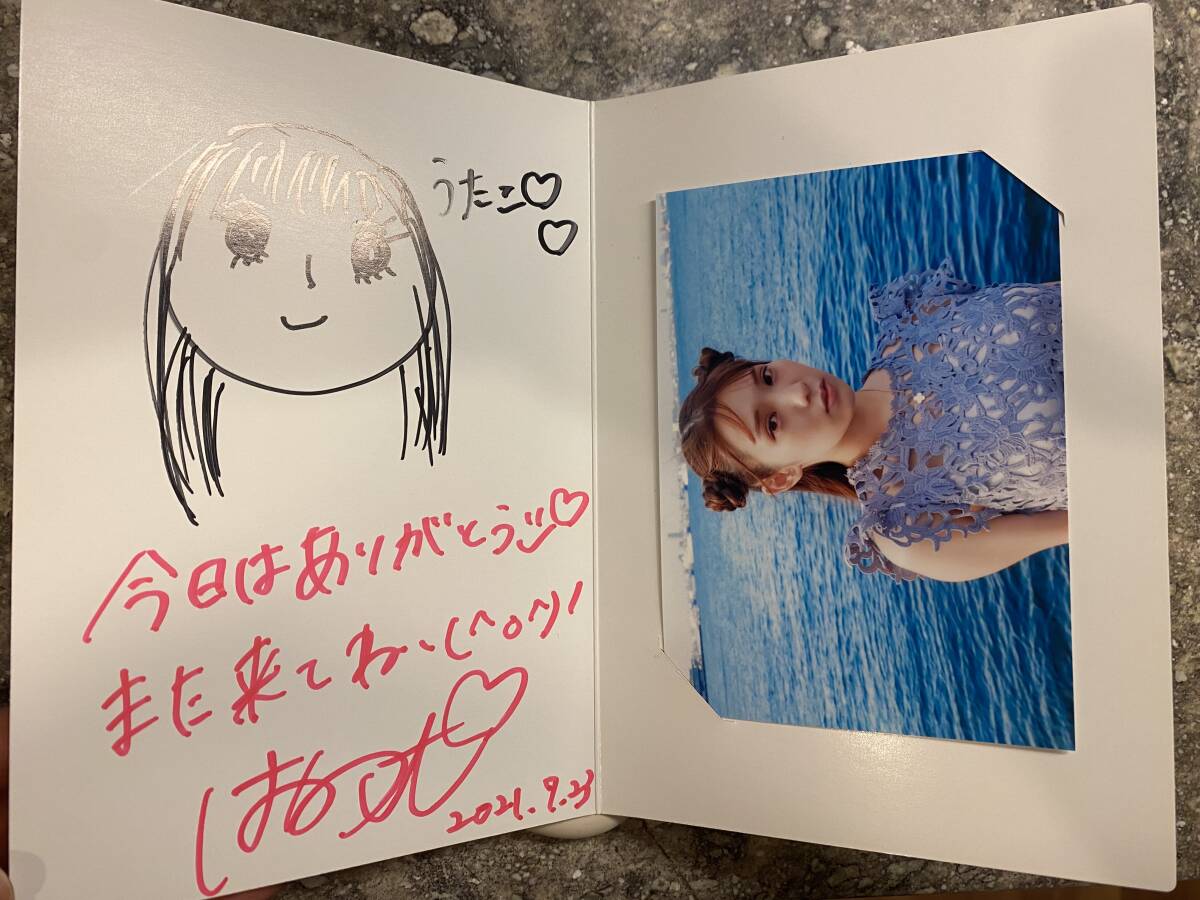 うたこ♡
♡
今日はありがとう♡
また来てね、(^o^)/
2021.9.23